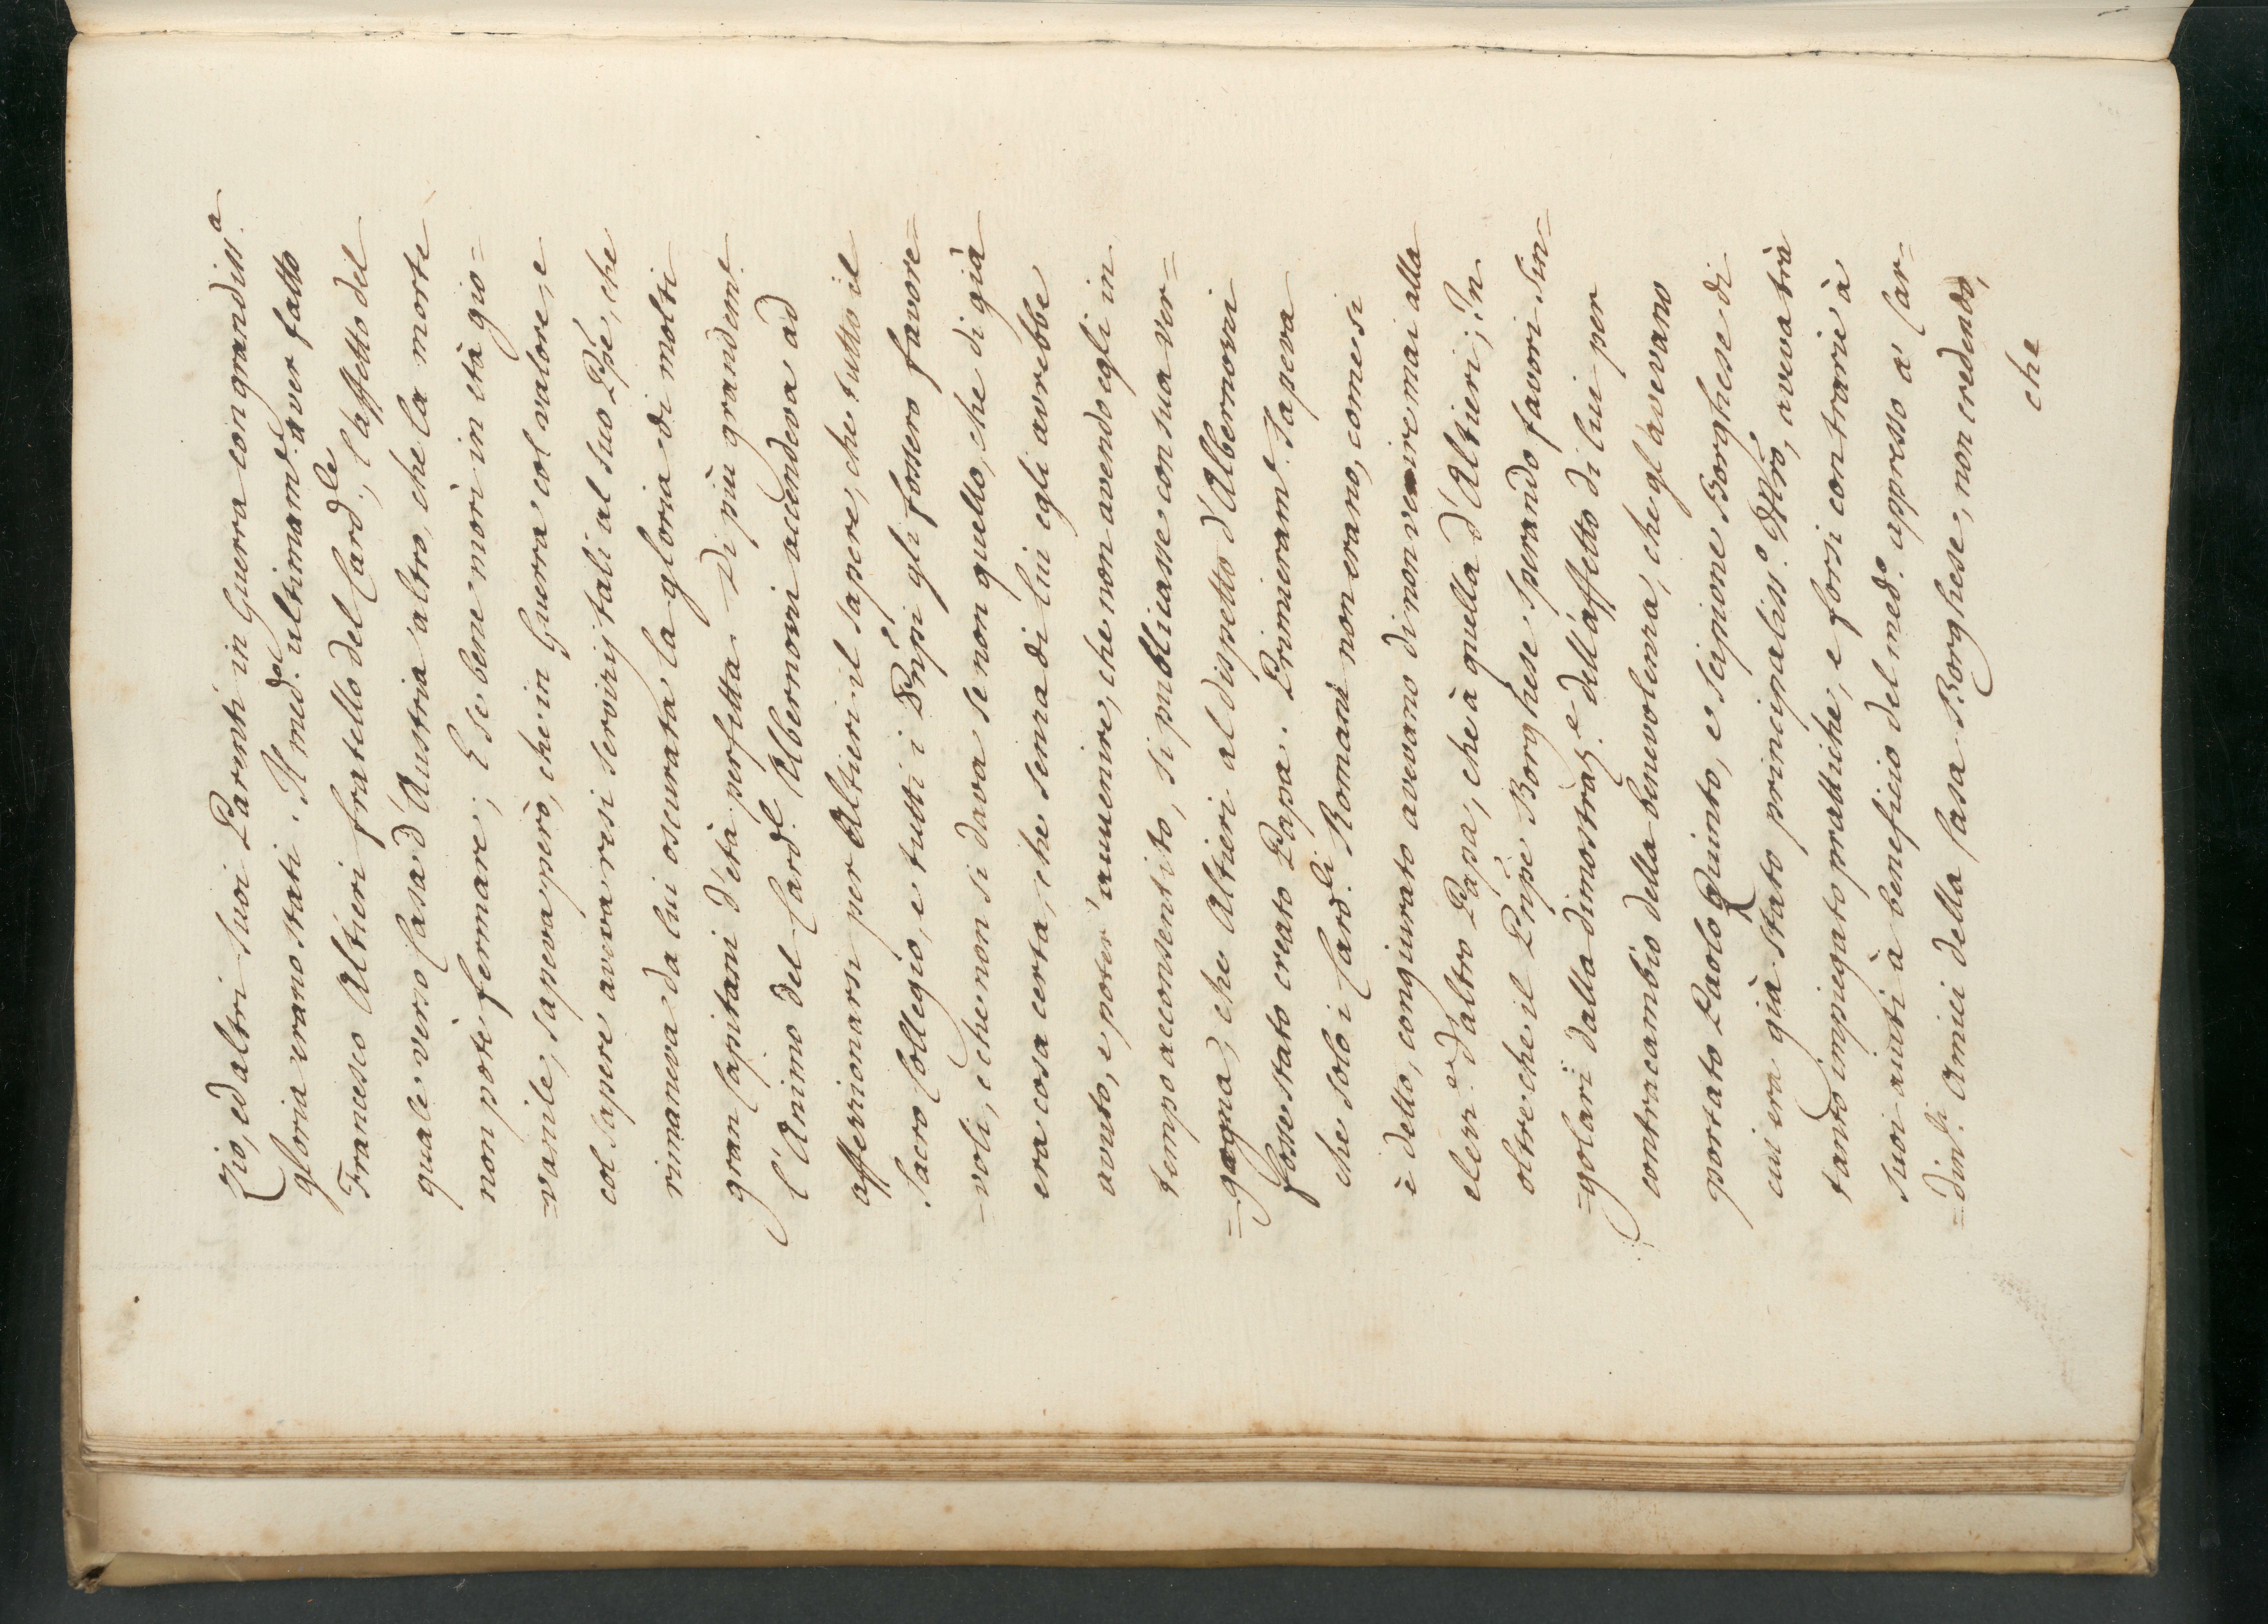 zio, ed altri suoi Parenti in Guerra con grandiss.a
gloria erano stati. Il med.o ultimam.e aver fatto
Francesco Altieri fratello del Card.le, l'affetto del
quale verso Casa d'Austria altro, che la morte
non potè fermare; E se bene morì in età gio=
=vanile, sapeva però, che in Guerra col valore, e
col sapere aveva resi servizij tali al suo Prè, che
rimaneva da lui oscurata la gloria di molti
gran Capitani d'età perfetta. Di più grandem.e
l'Animo del Card.l Albernozzi accendeva ad
affezzionarsi per Altieri il sapere, che tutto il
Sacro Collegio, e tutti i Prñpi gli fossero favore=
=voli, e che non si dava se non quello, che di già
era cosa certa, che senza di lui egli avrebbe
avuto, e poter' auuenire, che non avendo egli in
tempo acconsentito, si publicasse con sua ver=
=gogna, che Altieri al dispetto d'Albernozzi
fosse stato creato Papa. Primieram.e Sapeva
che solo i Card.li Romani non erano, come si
è detto, congiurato avevano di non venire mai alla
elez.e d'altro Papa, che à quella d'Altieri; In
oltre che il Prñpe Borghese sperando favori sin=
=golari dalla dimostraz.e dell'affetto di lui per
contracambio della benevolenza, che gl'avevano
portato Paolo Quinto, e Scipione Borghese di
cui era già stato principaliss.o Mrõ, aveva trà
tanto impiegato prattiche, e forsi contrarie à
suoi aiuti à beneficio del med.o appresso a' Car=
=din.li Amici della Casa Borghese, non credendo,
che